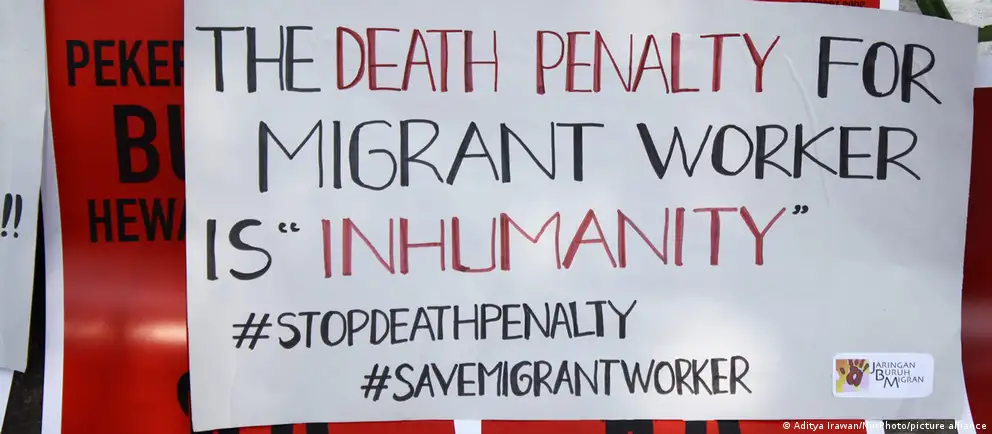 THE DEATH PENALTY FOR
MIGRANT WORKER
IS "INHUMANITY"
#STOPDEATHPENALTY
#SAVEMIGRANTWORKER
JARINGAN
BURUH
MIGRAN
HEWA
!!
© Aditya Irawan/NurPhoto/picture alliance